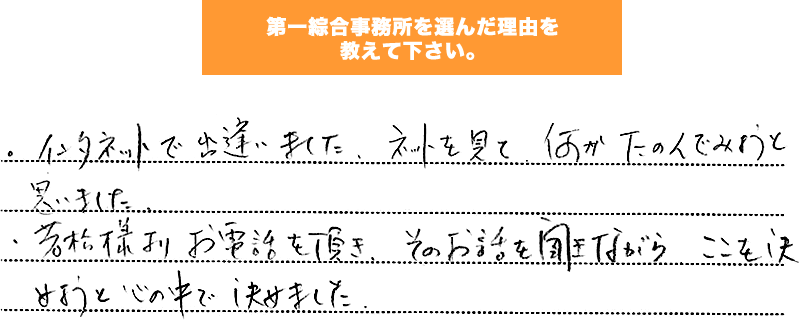 第一綜合事務所を選んだ理由を
教えて下さい。
。インタネットで出逢いました、ネットを見て、何かたのんでみようと
思いました、
・若松様よりお電話を頂き、そのお話を聞きながら ここを決
めようと心の中で決めました、